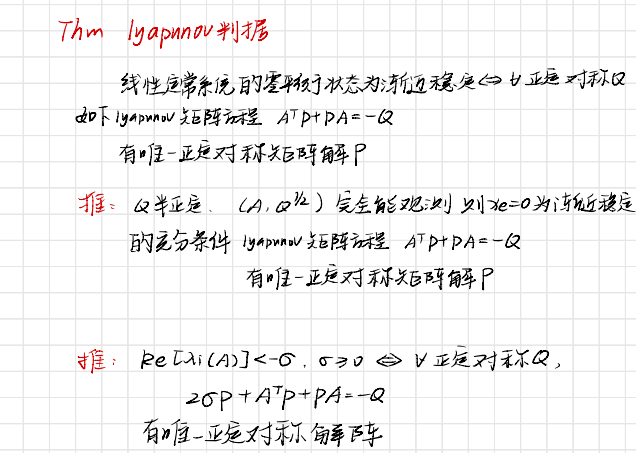 Thm lyapunov判据
线性定常系统的零平衡状态为渐近稳定⇔∀正定对称Q
如下lyapunov矩阵方程 AᵀP+PA=-Q
有唯一正定对称矩阵解P
推: Q半正定. (A, Q^{1/2})完全能观测 则xe=0为渐近稳定
的充分条件 lyapunov矩阵方程 AᵀP+PA=-Q
有唯一正定对称矩阵解P
推: Re[λi(A)]<-σ, σ≥0 ⇔ ∀正定对称Q,
2σP+AᵀP+PA=-Q
有唯一正定对称解阵